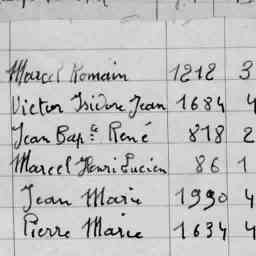 Marcel Romain 1212 3
Victor Isidore Jean 1684 4
Jean Bapte René 818 2
Marcel Henri Lucien 86 1
Jean Marie 1990 4
Pierre Marie 1634 4